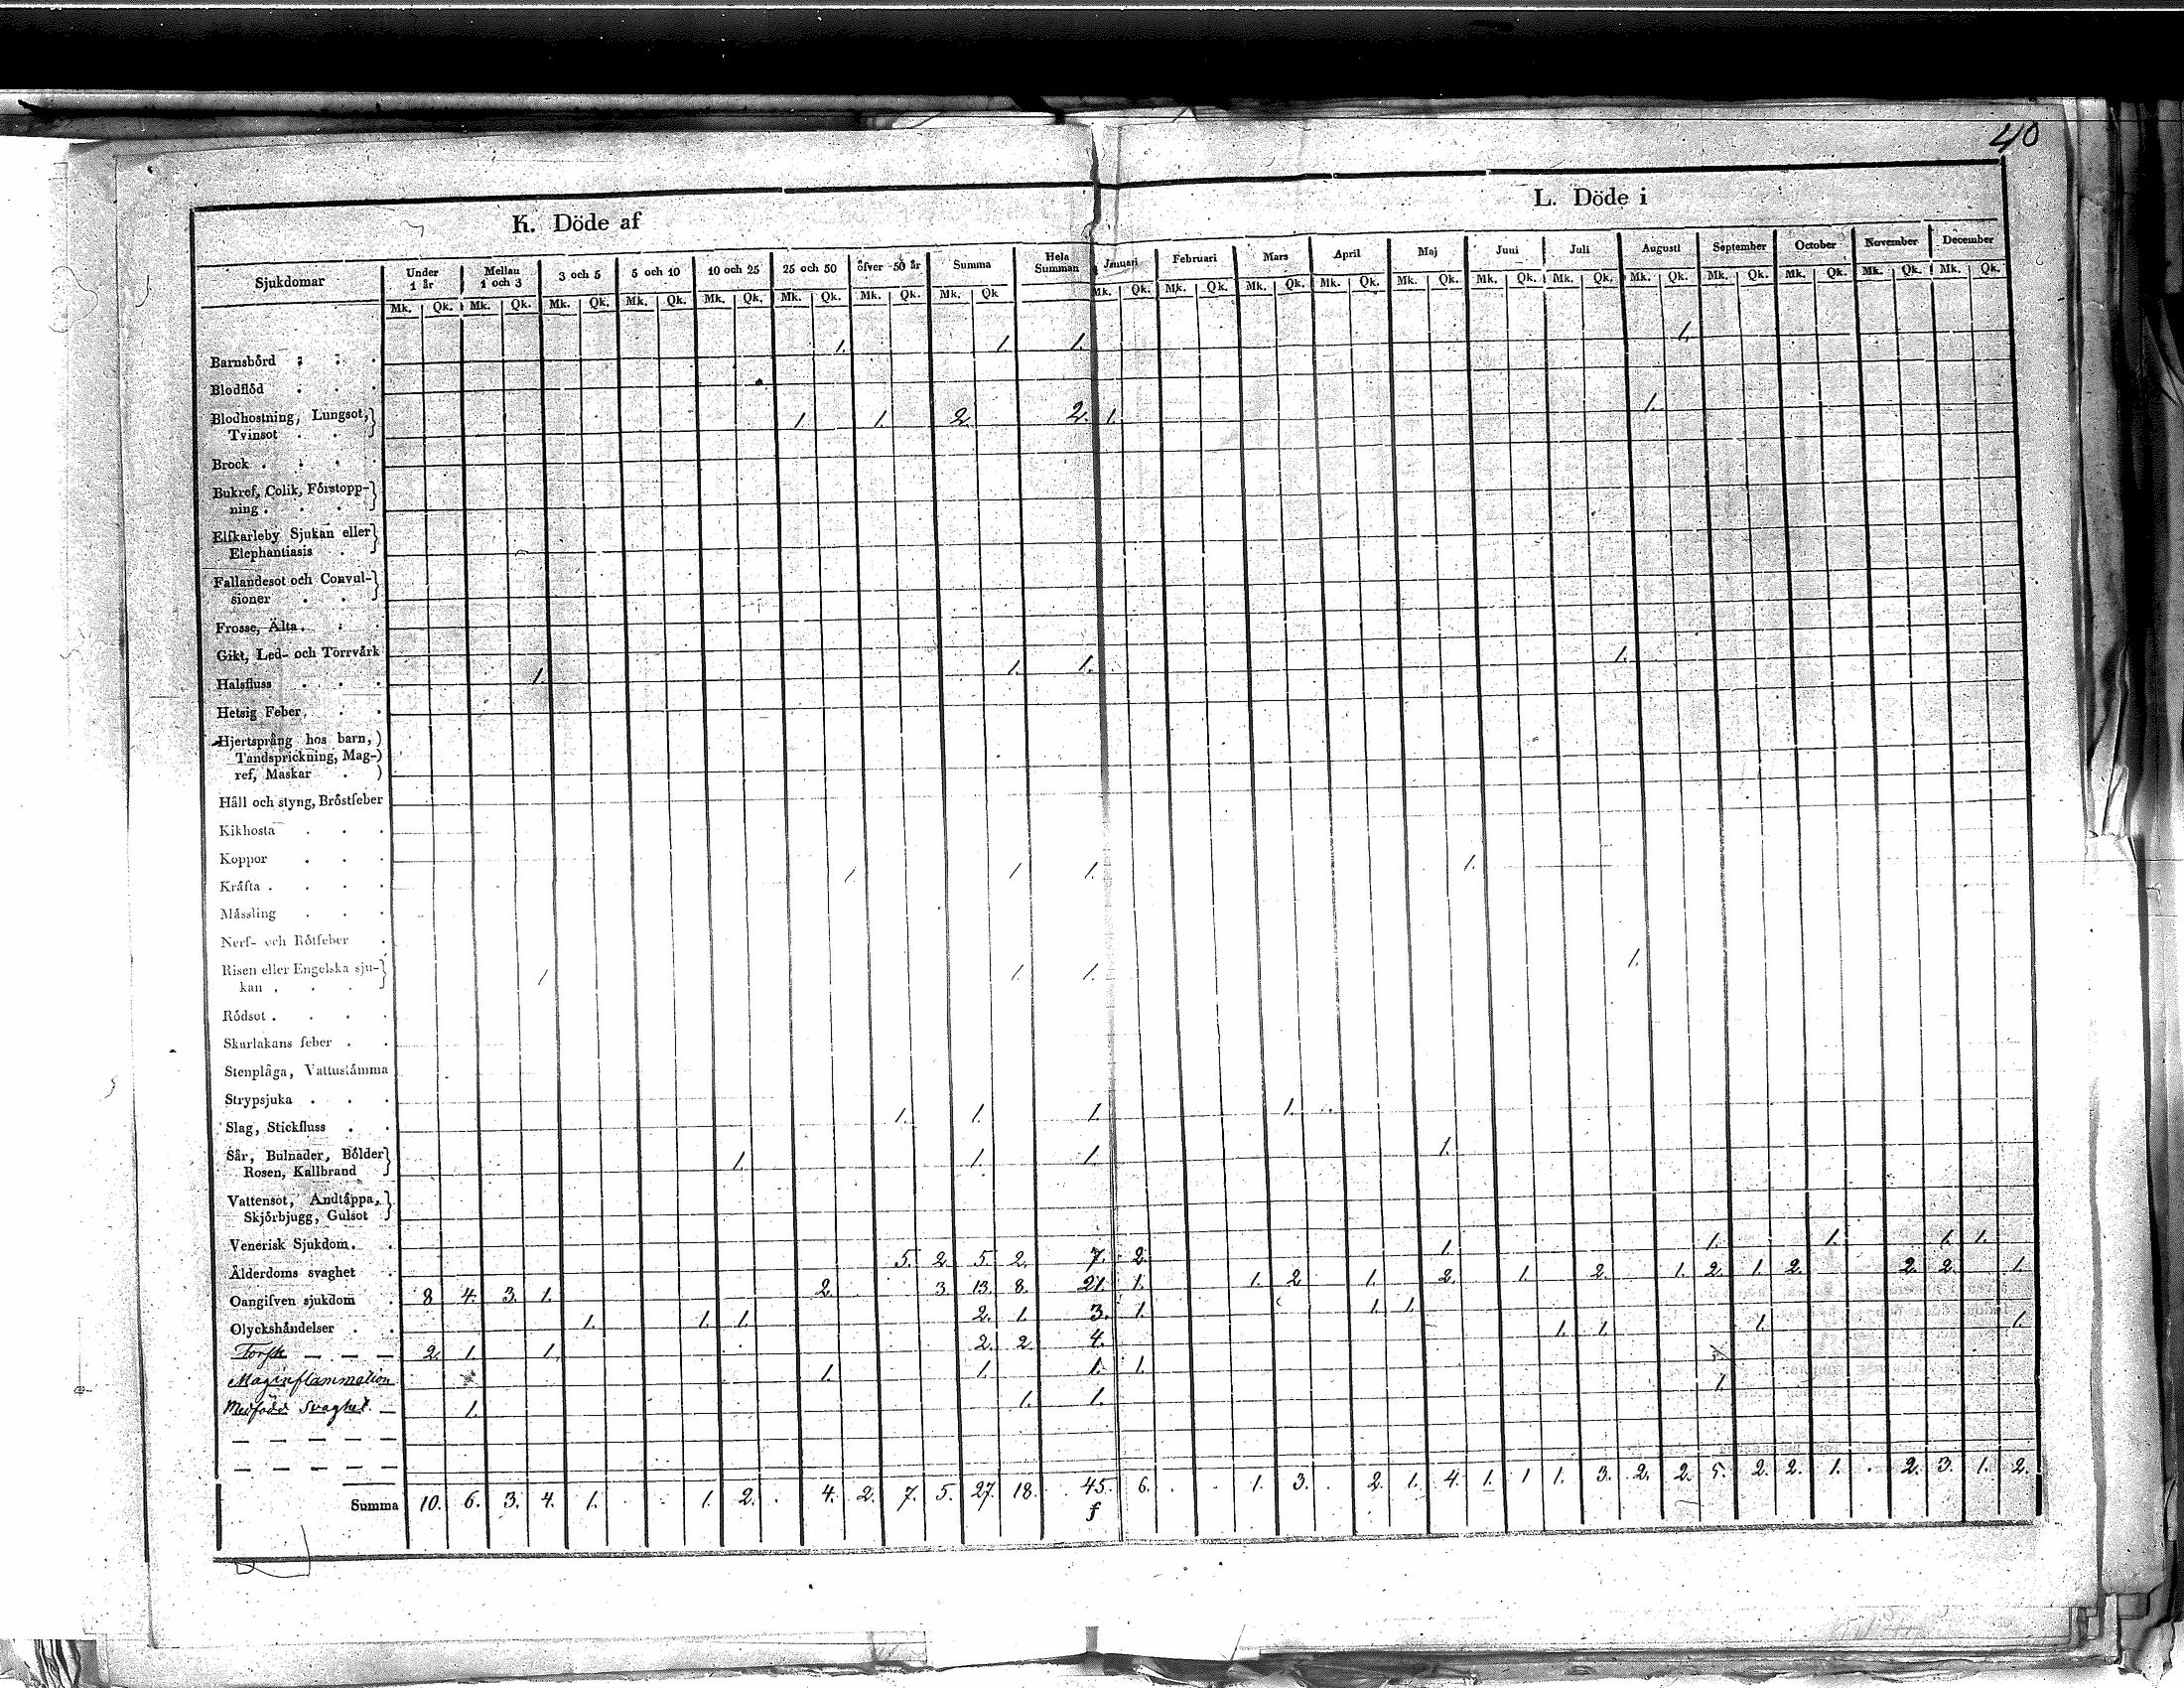 40
K. Döde af
L. Döde i
Sjukdomar Under 1 år Mellan 1 och 3 3 och 5 5 och 10 10 och 25 25 och 50 öfver 50 år Summa Hela Summan Januari Februari Mars April Maj Juni Juli Augusti September October November December
Mk. Qk. Mk. Qk. Mk. Qk. Mk. Qk. Mk. Qk. Mk. Qk. Mk. Qk. Mk. Qk Mk. Qk. Mk. Qk. Mk. Qk. Mk. Qk. Mk. Qk. Mk. Qk. Mk. Qk. Mk. Qk. Mk. Qk. Mk. Qk. Mk. Qk. Mk. Qk.
Barnsbörd 1. 1. 1. 1.
Blodflöd
Blodhostning, Lungsot,
Tvinsot 1. 1. 2. 2. 1. 1.
Brock
Bukref, Colik, Förstopp-
ning
Elfkarleby Sjukan eller
Elephantiasis
Fallandesot och Convul-
sioner
Frosse, Älta
Gikt, Led- och Torrvärk
Halsfluss 1. 1. 1. 1.
Hetsig Feber
Hjertsprång hos barn,
Tandsprickning, Mag-
ref, Maskar
Håll och styng, Bröstfeber
Kikhosta
Koppor
Kräfta 1. 1 1. 1.
Mässling
Nerf- och Rötfeber
Risen eller Engelska sju-
kan 1 1. 1. 1.
Rödsot
Skarlakans feber
Stenplåga, Vattustämma
Strypsjuka
Slag, Stickfluss 1. 1. 1. 1.
Sår, Bulnader, Bölder
Rosen, Kallbrand 1. 1. 1. 1.
Vattensot, Andtäppa,
Skjörbjugg, Gulsot
Venerisk Sjukdom
Ålderdoms svaghet 5. 2. 5. 2. 7. 2. 1. 1. 1. 1. 1.
Oangifven sjukdom 8 4. 3. 1. 2. 3. 13. 8. 21. 1. 1. 2 1. 2. 1. 2. 1. 2. 1. 2. 2. 2. 1.
Olyckshändelser 1. 1. 1. 2. 1. 3. 1. 1. 1.
Torsk 2. 1. 1. 2. 2. 4. 1. 1. 1. 1.
Maginflammation 1. 1. 1. 1.
Medfödd Svaghet 1. 1. 1. 1.
Summa 10. 6. 3. 4. 1. 1. 2. 4. 2. 7. 5. 27. 18. 45. 6. 1. 3. 2. 1. 4. 1. 1 1. 3. 2. 2. 5. 2. 2. 1. 2. 3. 1. 2.